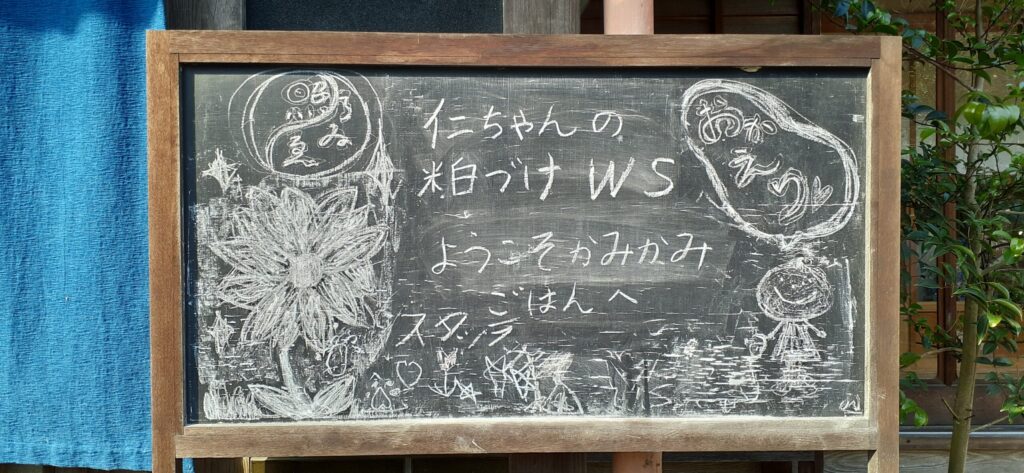 仁ちゃんの
粕づけ WS
ようこそかみかみ
ごはんへ
スタッフ
おかえり